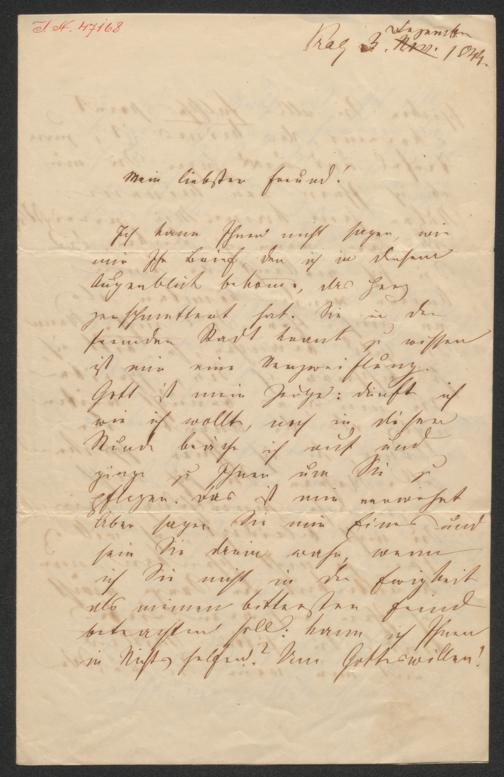 J. N. 47168
Prag 3. Dezember
Nov. 1844.
Mein liebster Freund!
Ich kann Ihnen nicht sagen, wie
mir Ihr Brief den ich in diesem
Augenblick bekome, das Herz
zerschmettert hat. Sie in der
fremden Stadt krank zu wissen
ist mir eine Verzweiflung.
Gott ist mein Zeuge: dürft ich
wie ich wollte, noch in dieser
Stunde bräche ich auf und
ginge zu Ihnen um Sie zu
pflegen. Das ist mir verwehrt
Aber sagen Sie mir Eines und
sein Sie darin wahr, wenn
ich Sie nicht in der Ewigkeit
als meinen bittersten Feind
betrachten soll: kann ich Ihnen
in Nichts helfen? Um Gotteswillen!